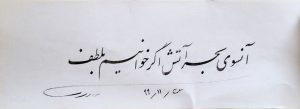 آنسوی بحر آتش اگر خوانیم بلطف
۹۹/۱۱/۲۳